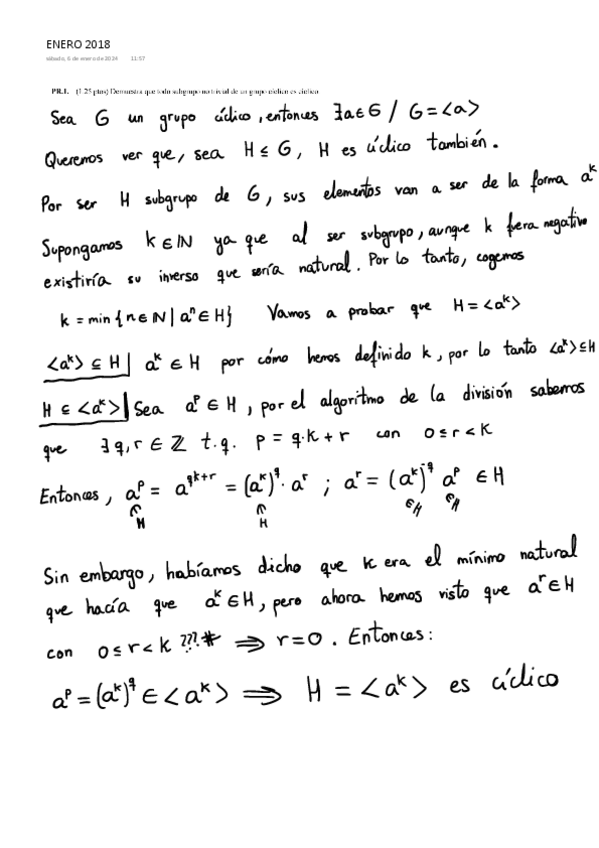 ENERO 2018
sábado, 6 de enero de 2024 11:57
PR.1. (1.25 ptos) Demuestra que todo subgrupo no trivial de un grupo cíclico es cíclico
Sea G un grupo cíclico, entonces ∃a∈G / G=<a>
Queremos ver que, sea H ≤ G, H es cíclico también.
Por ser H subgrupo de G, sus elementos van a ser de la forma a^k
Supongamos k∈ℕ ya que al ser subgrupo, aunque k fuera negativo
existiría su inverso que sería natural. Por lo tanto, cogemos
k = min{n∈ℕ | a^n∈H} Vamos a probar que H=<a^k>
<a^k> ⊆ H | a^k ∈ H por cómo hemos definido k, por lo tanto <a^k>≤H
H ⊆ <a^k> | Sea a^p ∈ H, por el algoritmo de la división sabemos
que ∃ q,r ∈ ℤ t.q. p = q·k + r con 0≤r<k
Entonces, a^p = a^{qk+r} = (a^k)^q · a^r ; a^r = (a^k)^{-q} a^p ∈ H
∈H ∈H
H H
Sin embargo, habíamos dicho que k era el mínimo natural
que hacía que a^k∈H, pero ahora hemos visto que a^r∈H
con 0≤r<k ???* ⇒ r=0. Entonces:
a^p = (a^k)^q ∈ <a^k> ⇒ H = <a^k> es cíclico